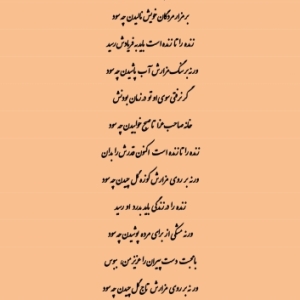 بر مزار مردگان خویش نالیدن چه سود
زنده را تا زنده است باید به فریادش رسید
ورنه بر سنگ مزارش آب پاشیدن چه سود
گر نرفتی سوی او تو در زمان بودنش
خانه صاحب عزا تا صبح خوابیدن چه سود
زنده را تا زنده است اکنون قدرش را بدان
ورنه بر روی مزارش کوزه گل چیدن چه سود
زنده را در زندگی باید به درد او رسید
ورنه مشکی از برای مرده پوشیدن چه سود
با محبت دست پیران را عزیز من، ببوس
ورنه بر روی مزارش تاج گل چیدن چه سود